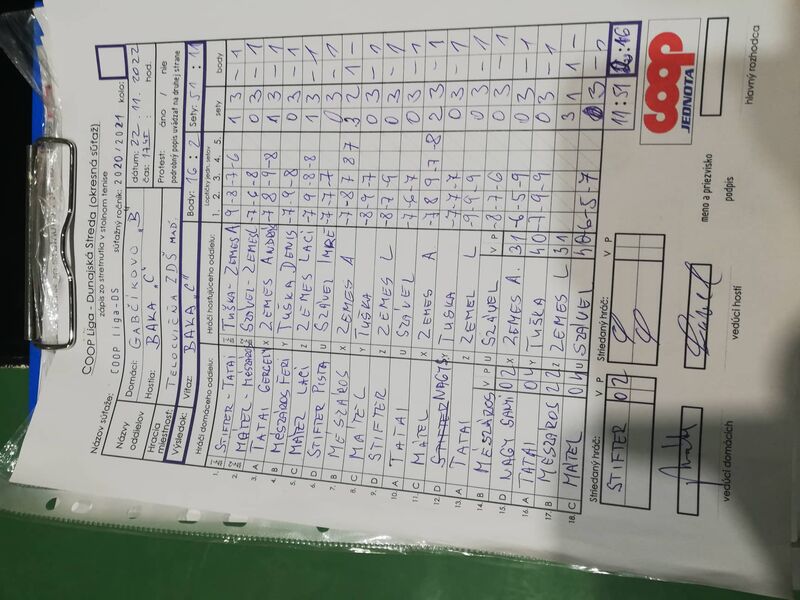 COOP Liga - Dunajská Streda (okresná súťaž)
zápis zo stretnutia v stolnom tenise
Názov súťaže: COOP liga-DS súťažný ročník: 2020/2021 kolo:
Názvy oddielov
Domáci: GABČÍKOVO „B“ dátum: 22 11 2022
Hostia: BAKA „C“ čas: hod.
Hracia miestnosť: TELOCVIČŇA ZDŠ MAĎ. Protest: áno / nie
podrobný popis uvádzať na druhej strane
Výsledok: Víťaz: BAKA „C“ Body: 16 : 2 Sety: 51 : 11
Hráči domáceho oddielu: Hráči hosťujúceho oddielu: Loptičky jedn. setov sety body
1. 2. 3. 4. 5.
1. STIFTER - TATAI TUŠKA - ZEMES A 9 -8 -7 -6 1 3 - 1
2. MATEL - MESZAROS SZÁVEL - ZEMES L -7 -6 -8 0 3 - 1
3. A TATAI GERGELY X ZEMES ANDRÁS 1 3 - 1
4. B MÉSZÁROS FERI Y TUŠKA DENIS -7 -9 -8 0 3 - 1
5. C MÁTEL LACI Z ZEMES LACI 1 3 - 1
6. D STIFTER PISTA U SZÁVEL IMRE -7 -7 -7 0 3 - 1
7. B MESZÁROS X ZEMES A 3 2 1 -
8. C MATEL Y TUŠKA -8 -9 -7 0 3 - 1
9. D STIFTER Z ZEMES L 0 3 - 1
10. A TATAI U SZÁVEL -7 -6 -7 0 3 - 1
11. C MÁTEL X ZEMES A 2 3 - 1
12. D NAGY Y TUŠKA -7 -7 -7 0 3 - 1
13. A TATAI Z ZEMEL L 0 3 - 1
14. B MÉSZÁROS V P U SZÁVEL V P -8 -7 -6 0 3 - 1
15. D NAGY 0 2 X ZEMES A. 3 1 -6 -5 -9 0 3 - 1
16. A TATAI 0 4 Y TUŠKA 4 0 -7 -9 -9 0 3 - 1
17. B MESZAROS 2 2 Z ZEMES L 3 1 3 1 1 -
18. C MATEL 0 4 U SZÁVEL 4 0 -6 -5 -7 0 3 - 1
Striedaný hráč: V P Striedaný hráč: V P 11:51
STIFTER 0 2
COOP
JEDNOTA
meno a priezvisko
podpis
vedúci domácich vedúci hostí hlavný rozhodca